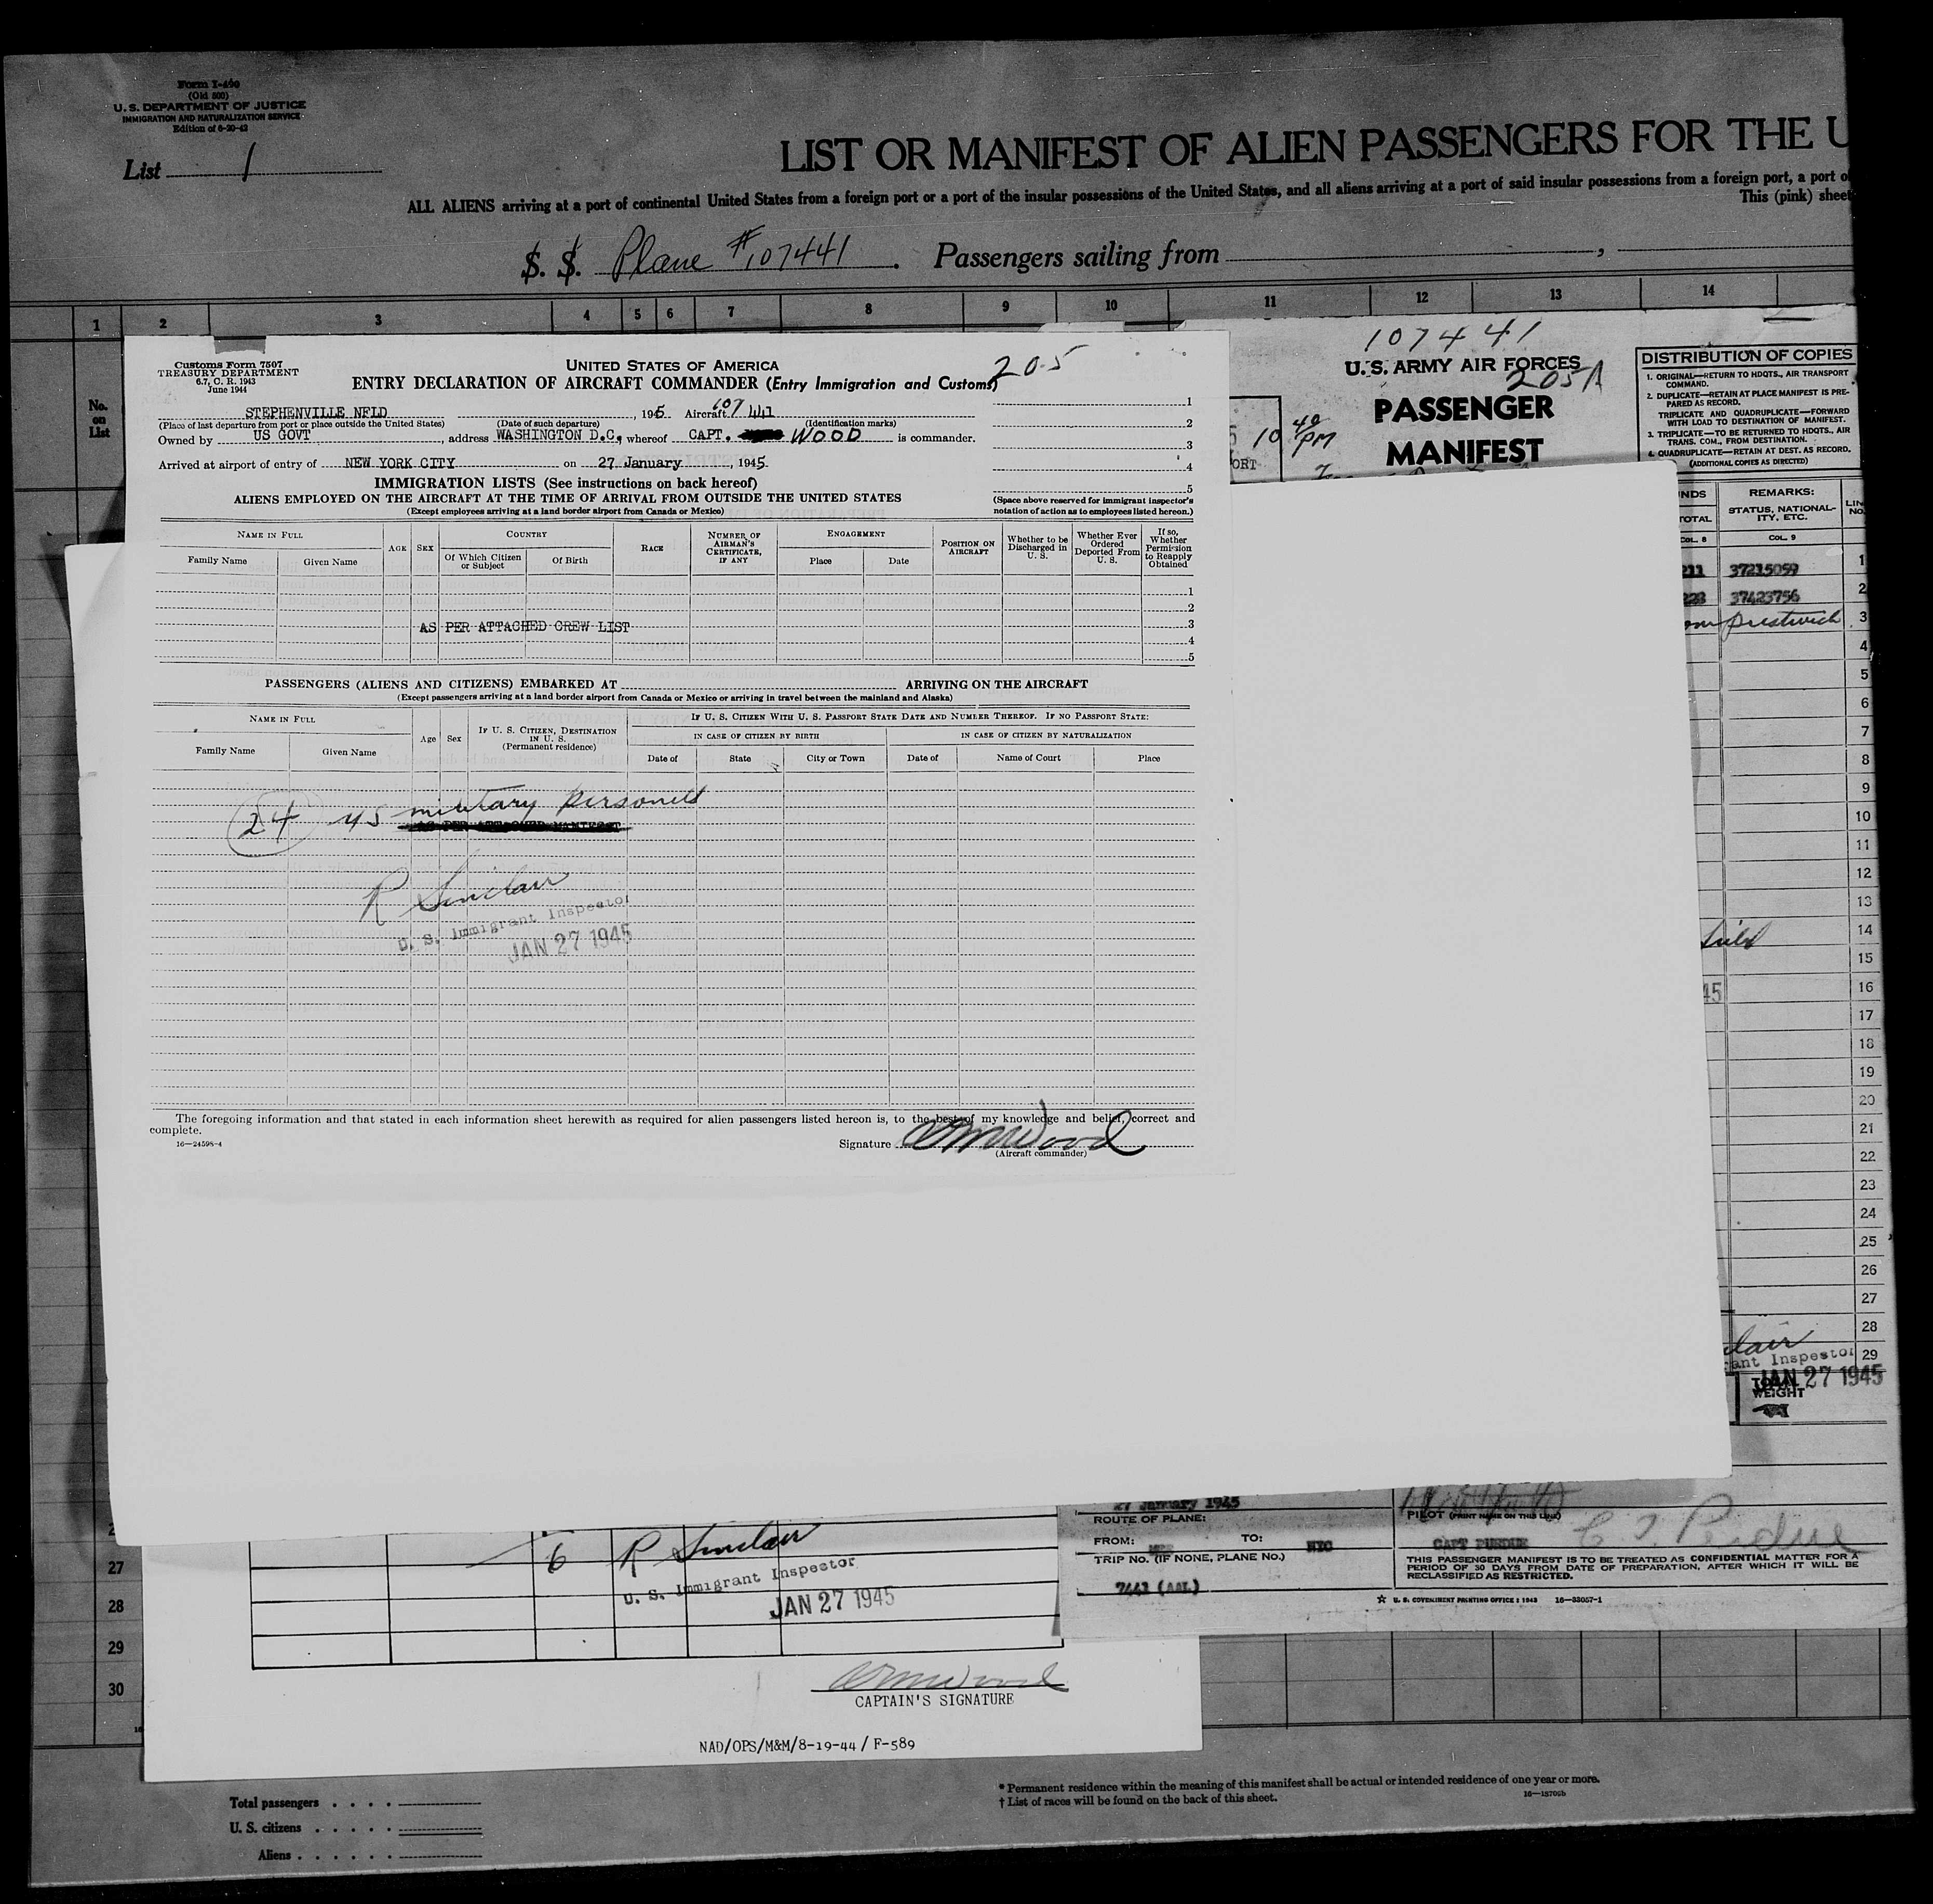 Form I-490
(Old 500)
U. S. DEPARTMENT OF JUSTICE
IMMIGRATION AND NATURALIZATION SERVICE
Edition of 6-20-42
List 1
LIST OR MANIFEST OF ALIEN PASSENGERS FOR THE U
ALL ALIENS arriving at a port of continental United States from a foreign port or a port of the insular possessions of the United States, and all aliens arriving at a port of said insular possessions from a foreign port, a port o
This (pink) sheet
S. S. Plane #107441. Passengers sailing from ,
1 2 3 4 5 6 7 8 9 10 11 12 13 14
No. on List
Customs Form 7507
TREASURY DEPARTMENT
6.7, C. R. 1943
June 1944
UNITED STATES OF AMERICA
205
ENTRY DECLARATION OF AIRCRAFT COMMANDER (Entry Immigration and Customs)
STEPHENVILLE NFLD , 1945 Aircraft 107 441
(Place of last departure from port or place outside the United States) (Date of such departure) (Identification marks)
Owned by US GOVT, address WASHINGTON D.C, whereof CAPT. WOOD is commander.
Arrived at airport of entry of NEW YORK CITY on 27 January, 1945
1
2
3
4
5
IMMIGRATION LISTS (See instructions on back hereof)
ALIENS EMPLOYED ON THE AIRCRAFT AT THE TIME OF ARRIVAL FROM OUTSIDE THE UNITED STATES
(Except employees arriving at a land border airport from Canada or Mexico)
(Space above reserved for immigrant inspector's
notation of action as to employees listed hereon.)
NAME IN FULL
Family Name Given Name
AGE SEX
COUNTRY
Of Which Citizen or Subject Of Birth
RACE
NUMBER OF AIRMAN'S CERTIFICATE, IF ANY
ENGAGEMENT
Place Date
POSITION ON AIRCRAFT
Whether to be Discharged in U. S.
Whether Ever Ordered Deported From U. S.
If so, Whether Permission to Reapply Obtained
1
2
AS PER ATTACHED CREW LIST 3
4
5
PASSENGERS (ALIENS AND CITIZENS) EMBARKED AT ARRIVING ON THE AIRCRAFT
(Except passengers arriving at a land border airport from Canada or Mexico or arriving in travel between the mainland and Alaska)
NAME IN FULL
Family Name Given Name
Age Sex
IF U. S. CITIZEN, DESTINATION IN U. S. (Permanent residence)
IF U. S. CITIZEN WITH U. S. PASSPORT STATE DATE AND NUMBER THEREOF. IF NO PASSPORT STATE:
IN CASE OF CITIZEN BY BIRTH IN CASE OF CITIZEN BY NATURALIZATION
Date of State City or Town Date of Name of Court Place
24 US military personel
AS PER ATTACHED MANIFEST
R Sinclair
U. S. Immigrant Inspector
JAN 27 1945
The foregoing information and that stated in each information sheet herewith as required for alien passengers listed hereon is, to the best of my knowledge and belief, correct and
complete.
16—24598-4
Signature Wood
(Aircraft commander)
107441
U.S. ARMY AIR FORCES
205A
PASSENGER
MANIFEST
10 40 PM
ORT
DISTRIBUTION OF COPIES
1. ORIGINAL—RETURN TO HDQTS., AIR TRANSPORT COMMAND.
2. DUPLICATE—RETAIN AT PLACE MANIFEST IS PREPARED AS RECORD.
TRIPLICATE AND QUADRUPLICATE—FORWARD WITH LOAD TO DESTINATION OF MANIFEST.
3. TRIPLICATE—TO BE RETURNED TO HDQTS., AIR TRANS. COM., FROM DESTINATION.
4. QUADRUPLICATE—RETAIN AT DEST. AS RECORD.
(ADDITIONAL COPIES AS DIRECTED)
NDS REMARKS: LINE NO.
STATUS, NATIONALITY, ETC.
TOTAL
COL. 8 COL. 9
211 37215059 1
223 37423756 2
Prestwick 3
4
5
6
7
8
9
10
11
12
13
14
15
45 16
17
18
19
20
21
22
23
24
25
26
27
28
lair
ant Inspector 29
JAN 27 1945
TOTAL WEIGHT
27 January 1945
ROUTE OF PLANE:
FROM: TO: NYC
TRIP NO. (IF NONE, PLANE NO.)
7441 (AAL)
PILOT (PRINT NAME ON THIS LINE)
CAPT PURDUE
THIS PASSENGER MANIFEST IS TO BE TREATED AS CONFIDENTIAL MATTER FOR A
PERIOD OF 30 DAYS FROM DATE OF PREPARATION, AFTER WHICH IT WILL BE
RECLASSIFIED AS RESTRICTED.
☆ U. S. GOVERNMENT PRINTING OFFICE : 1943 16—33057-1
6 R Sinclair
U. S. Immigrant Inspector
JAN 27 1945
27
28
29
30
CAPTAIN'S SIGNATURE
NAD/OPS/M&M/8-19-44 / F-589
Total passengers
U. S. citizens
Aliens
* Permanent residence within the meaning of this manifest shall be actual or intended residence of one year or more.
† List of races will be found on the back of this sheet.